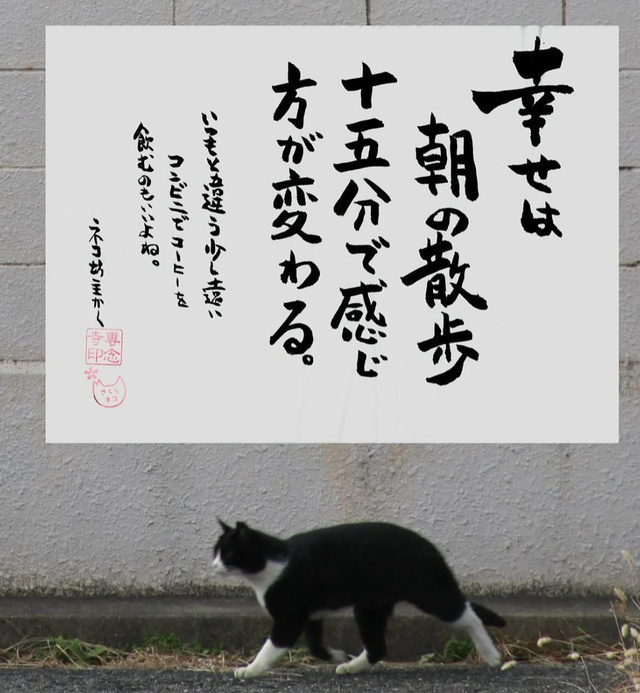 幸せは
朝の散歩
十五分で感じ
方が変わる。
いつもと違う少し遠い
コンビニでコーヒーを
飲むのもいいよね。
ネコ坊主かく
専念
寺印
さくら
ネコ